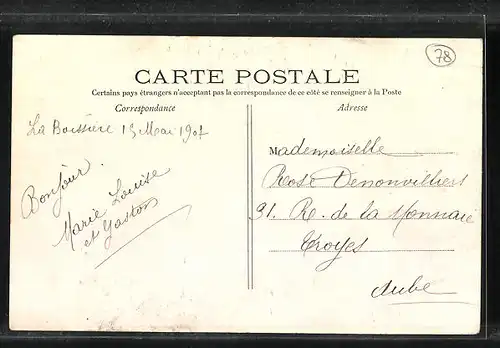 78
CARTE POSTALE
Certains pays étrangers n'acceptant pas la correspondance de ce côté se renseigner à la Poste
Correspondance
Adresse
La Boissière 15 Mai 1907
Bonjour.
Marie Louise
et Gaston
Mademoiselle
Rose Denonvilliers
91. R. de la Monnaie
Troyes
Aube